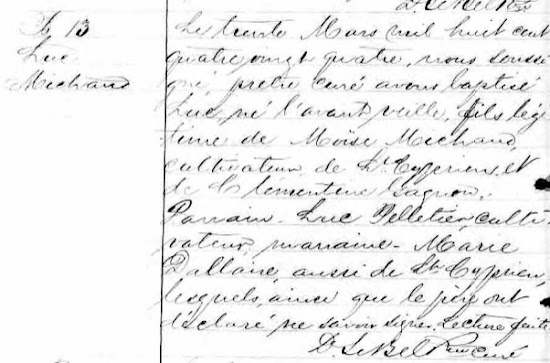 D. LeBel Ptre
B 13
Luc
Michaud
Le trente Mars mil huit cent
quatre vingt quatre, nous soussi
gné, prêtre curé avons baptisé
Luc, né l'avant veille, fils légi
time de Moïse Michaud,
cultivateur, de St Cyprien, et
de Clémentine Gagnon.
Parrain - Luc Pelletier, culti-
vateur, marraine - Marie
Dallaire, aussi de St Cyprien,
lesquels, ainsi que le père ont
déclaré ne savoir signer. Lecture faite
D. LeBel Ptre curé